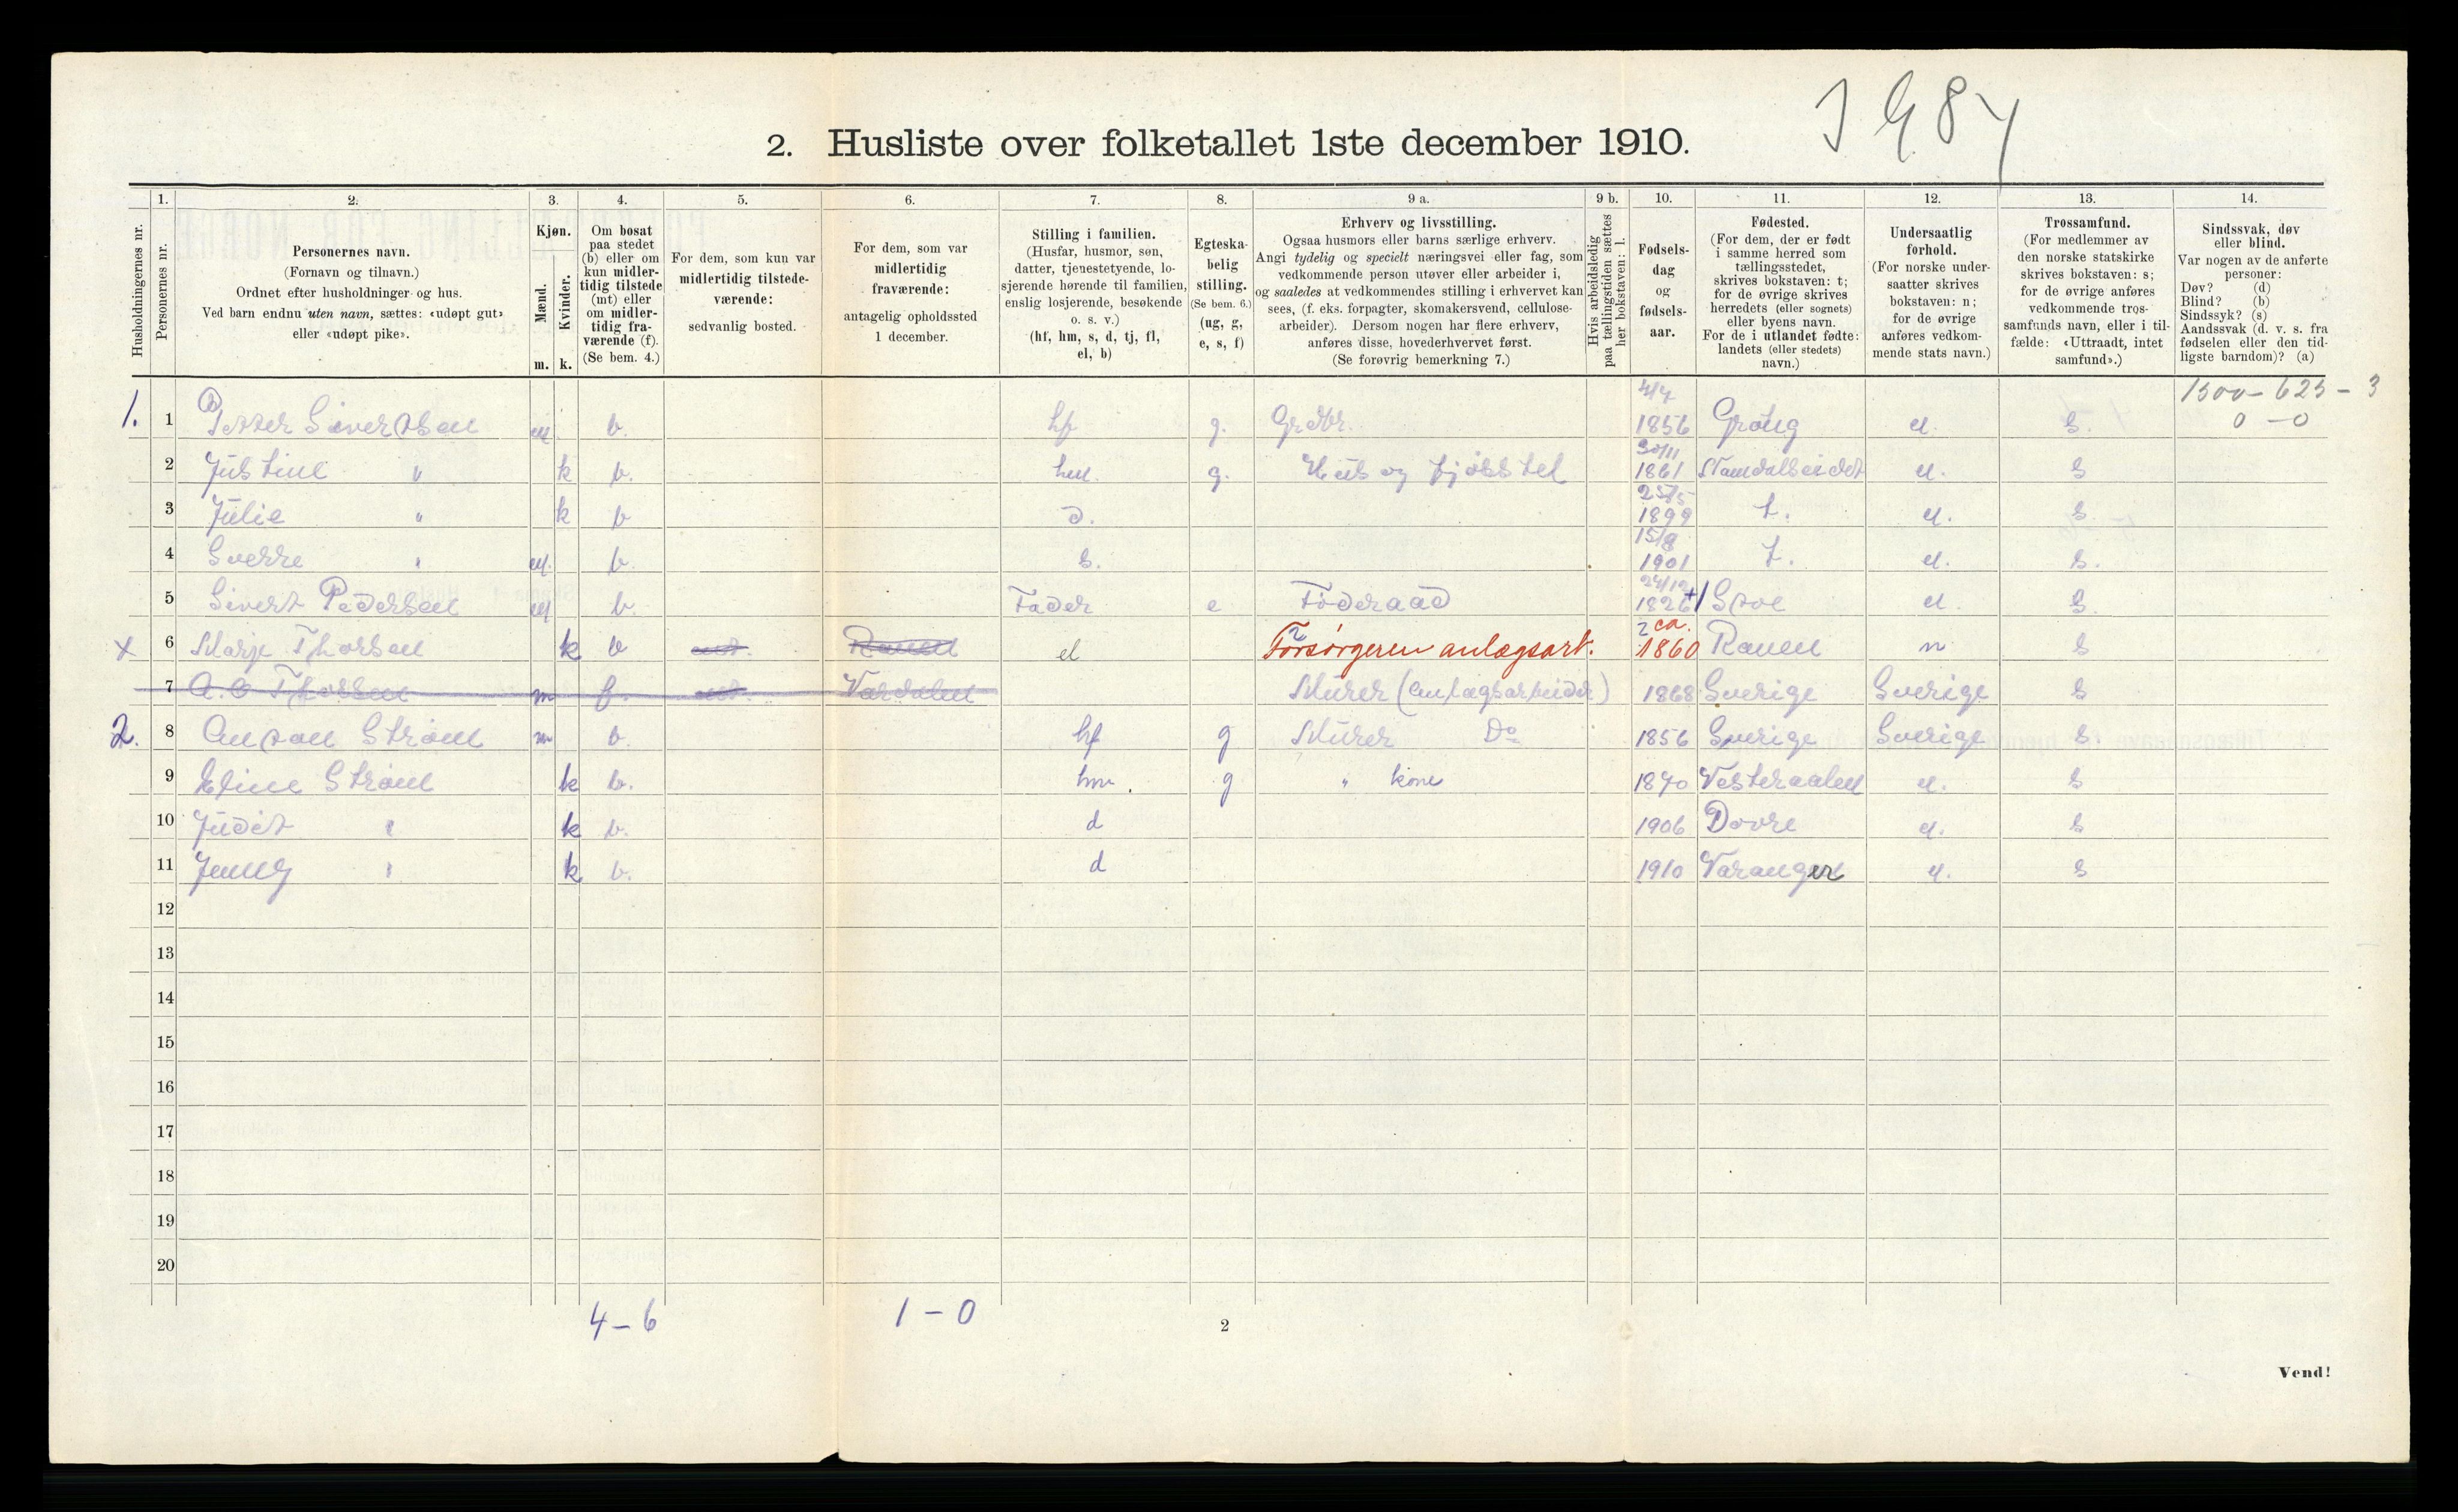 2. Husliste over folketallet 1ste december 1910.
1. 2. 3. 4. 5. 6. 7. 8. 9 a. 9 b. 10. 11. 12. 13. 14.
Husholdningernes nr.
Personernes nr.
Personernes navn.
(Fornavn og tilnavn.)
Ordnet efter husholdninger og hus.
Ved barn endnu uten navn, sættes: «udøpt gut»
eller «udøpt pike».
Kjøn.
Mænd.
Kvinder.
m. k.
Om bosat
paa stedet
(b) eller om
kun midler-
tidig tilstede
(mt) eller
om midler-
tidig fra-
værende (f).
(Se bem. 4.)
For dem, som kun var
midlertidig tilstede-
værende:
sedvanlig bosted.
For dem, som var
midlertidig
fraværende:
antagelig opholdssted
1 december.
Stilling i familien.
(Husfar, husmor, søn,
datter, tjenestetyende, lo-
sjerende hørende til familien,
enslig losjerende, besøkende
o. s. v.)
(hf, hm, s, d, tj, fl,
el, b)
Egteska-
belig
stilling.
(Se bem. 6.)
(ug, g,
e, s, f)
Erhverv og livsstilling.
Ogsaa husmors eller barns særlige erhverv.
Angi tydelig og specielt næringsvei eller fag, som
vedkommende person utøver eller arbeider i,
og saaledes at vedkommendes stilling i erhvervet kan
sees, (f. eks. forpagter, skomakersvend, cellulose-
arbeider). Dersom nogen har flere erhverv,
anføres disse, hovederhvervet først.
(Se forøvrig bemerkning 7.)
Hvis arbeidsledig
paa tællingstiden sættes
her bokstaven: l.
Fødsels-
dag
og
fødsels-
aar.
Fødested.
(For dem, der er født
i samme herred som
tællingsstedet,
skrives bokstaven: t;
for de øvrige skrives
herredets (eller sognets)
eller byens navn.
For de i utlandet fødte:
landets (eller stedets)
navn.)
Undersaatlig
forhold.
(For norske under-
saatter skrives
bokstaven: n;
for de øvrige
anføres vedkom-
mende stats navn.)
Trossamfund.
(For medlemmer av
den norske statskirke
skrives bokstaven: s;
for de øvrige anføres
vedkommende tros-
samfunds navn, eller i til-
fælde: «Uttraadt, intet
samfund».)
Sindssvak, døv
eller blind.
Var nogen av de anførte
personer:
Døv? (d)
Blind? (b)
Sindssyk? (s)
Aandssvak (d. v. s. fra
fødselen eller den tid-
ligste barndom)? (a)
1500 - 625 - 3
0 - 0
1. 1 Petter Sivertsen m b. hf g. Grdbr. 4/4 1856 Grong n. s.
2 Justine " k b. hm. g. Hus og fjøsstel 30/11 1861 Namdalseidet n. s
3 Julie " k b d. 25/5 1899 t. n. s
4 Sverre " m. b. s. 15/8 1901 t. n. s.
5 Sivert Pedersen m b. Fader e Føderaad 24/12 1826 n. s.
x 6 Marje Thorsen k b el Forsørgeren anlægsarb. ca. 1860 Ranen n s
7 A. O Thorsen m f. Værdalen Murer (anlægsarbeider) 1868 Sverige Sverige s
2. 8 Anton Strøm m b. hf g Murer Do 1856 Sverige Sverige s.
9 Eline Strøm k b. hm. g " kone 1870 Vesteraalen n. s
10 Judit " k b. d 1906 Dovre n. s
11 Jenny " k b. d 1910 Varanger n. s
12
13
14
15
16
17
18
19
20
4 - 6 1 - 0
2
Vend!